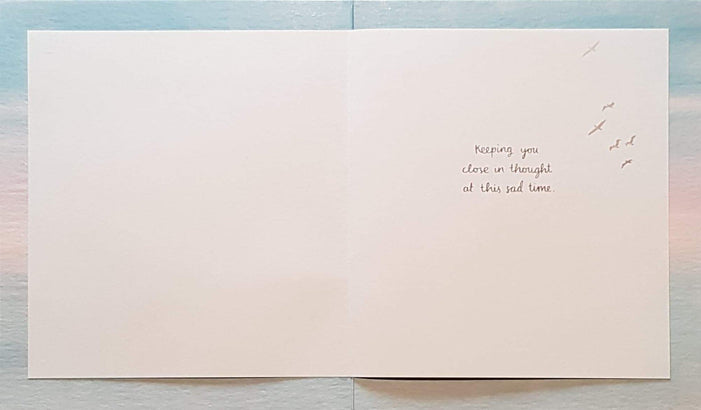 Keeping you
close in thought
at this sad time.